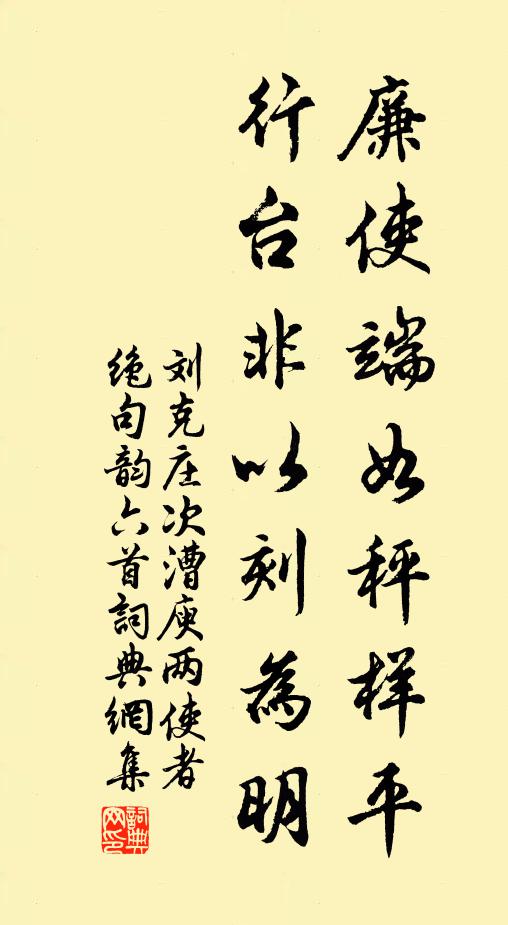 廉使端如秤样平
行台非以刻為明
刘克庄次漕庾两使者
绝句韵六首詞典網集
詞典
网印